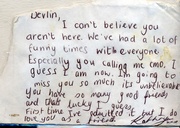 Devlin,
I can't believe you
aren't here. We've had a lot of
funny times with everyone
Especially you calling me emo. I
guess I am now. I'm going to
miss you so much its unbelievable
you have so many good friends
and thats lucky I guess,
first time I've admitted it but I do
love you as a friend.